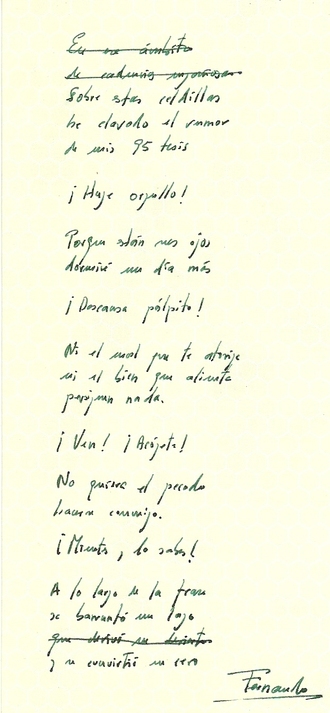 En ese ámbito
de cadencia
Sobre estas celdillas
he clavado el rumor
de mis 95 tesis
¡Huye orgullo!
Porque están mis ojos
dormiré un día más
¡Descansa pálpito!
Ni el mal que te atenaza
ni el bien que alimenta
perjuran nada.
¡Ven! ¡Acógete!
No quiera el pecado
hacer conmigo.
¡Mientes, lo sabes!
A lo largo de la frase
se barruntó un lazo
que derivó en
y se convirtió en cero
Fernando